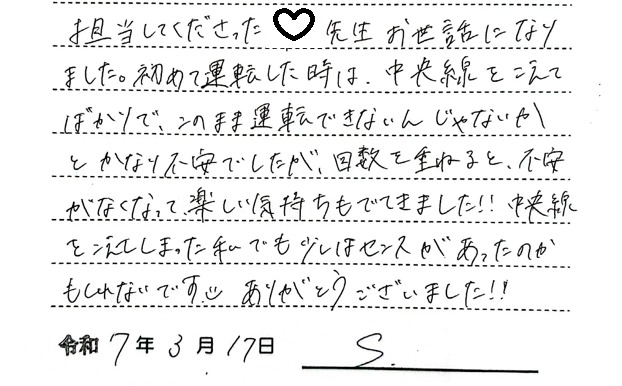 担当してくださった ♡ 先生 お世話になり
ました。初めて運転した時は、中央線をこえて
ばかりで、このまま運転できないんじゃないか
とかなり不安でしたが、回数を重ねると、不安
がなくなって楽しい気持ちもでてきました!! 中央線
をこえてしまった私でも少しはセンスがあったのか
もしれないです☺ ありがとうございました!!
令和 7 年 3 月 17 日 S.